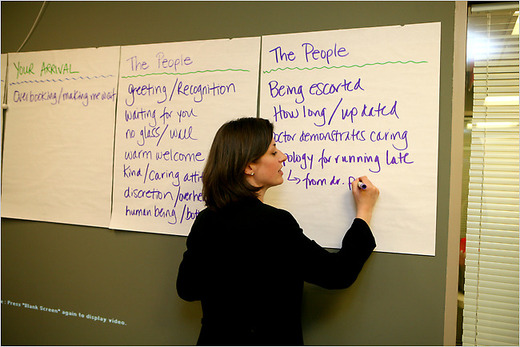 YOUR ARRIVAL
Overbooking/making me wait
The People
greeting/Recognition
waiting for you
no glass/well
warm welcome
kind/caring
discretion/
human being/
The People
Being escorted
How long/updated
demonstrates caring
for running late
↳ from dr.
: Press "Blank Screen" again to display video.